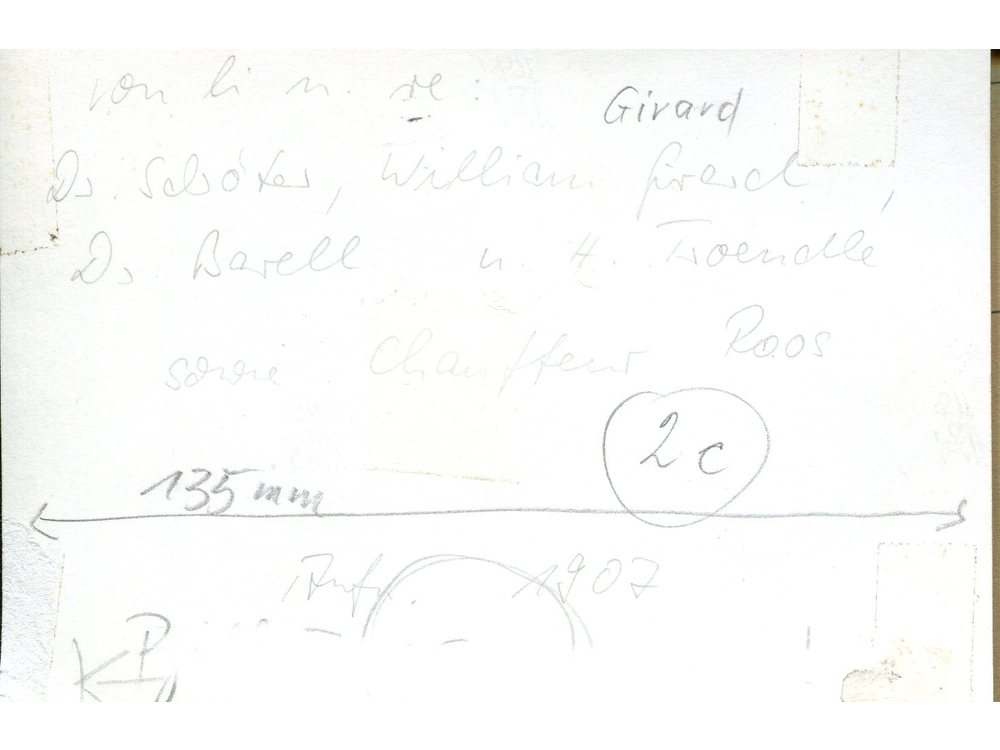 von li n. re:
Girard
Dr. Schöter, William Girard,
Dr Barell u. H. Troendle
sowie Chauffeur Roos
2c
135 mm
1907